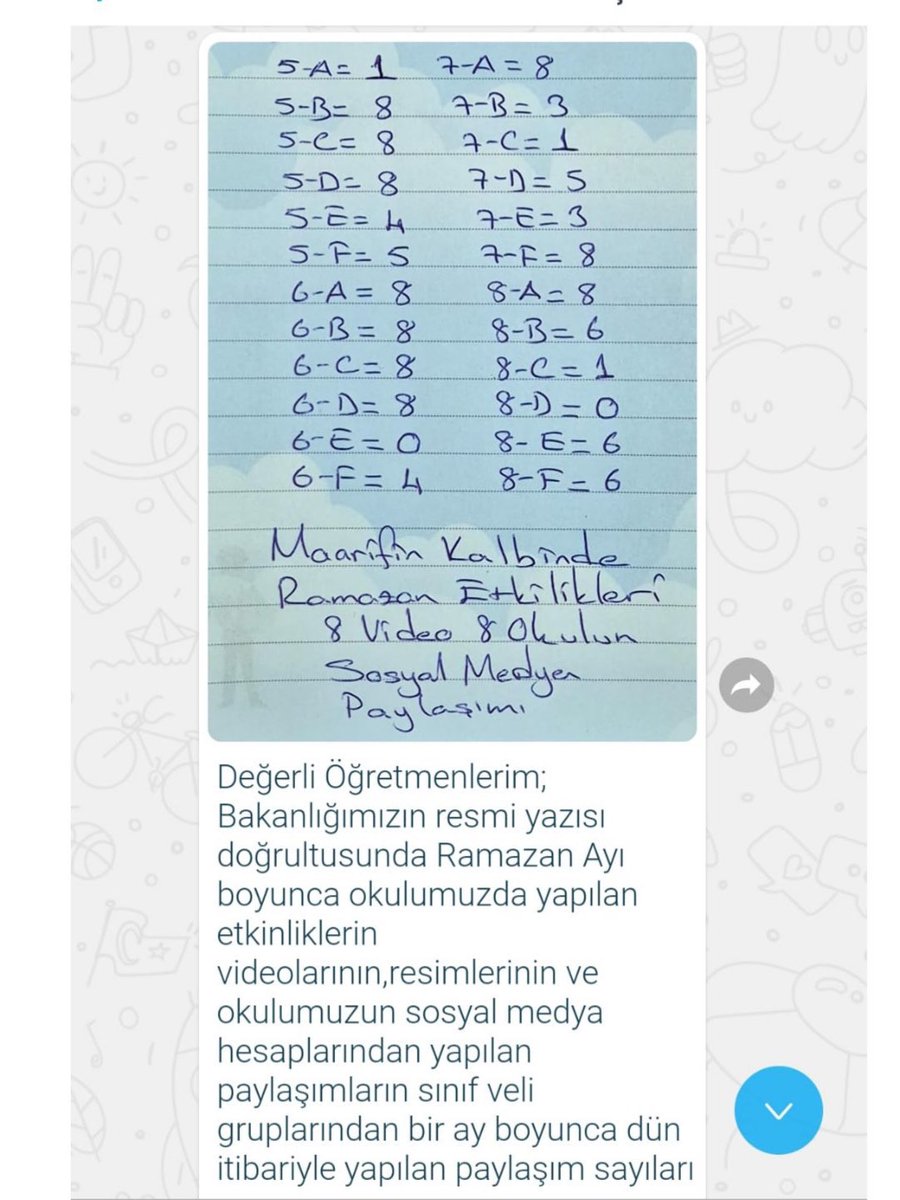 5-A= 1 7-A = 8
5-B= 8 7-B= 3
5-C= 8 7-C= 1
5-D= 8 7-D= 5
5-E= 4 7-E= 3
5-F= 5 7-F= 8
6-A = 8 8-A= 8
6-B= 8 8-B= 6
6-C= 8 8-C= 1
6-D= 8 8-D= 0
6-E= 0 8-E= 6
6-F= 4 8-F= 6
Maarifin Kalbinde
Ramazan Etkilikleri
8 Video 8 Okulun
Sosyal Medya
Paylaşımı
Değerli Öğretmenlerim;
Bakanlığımızın resmi yazısı
doğrultusunda Ramazan Ayı
boyunca okulumuzda yapılan
etkinliklerin
videolarının,resimlerinin ve
okulumuzun sosyal medya
hesaplarından yapılan
paylaşımların sınıf veli
gruplarından bir ay boyunca dün
itibariyle yapılan paylaşım sayıları